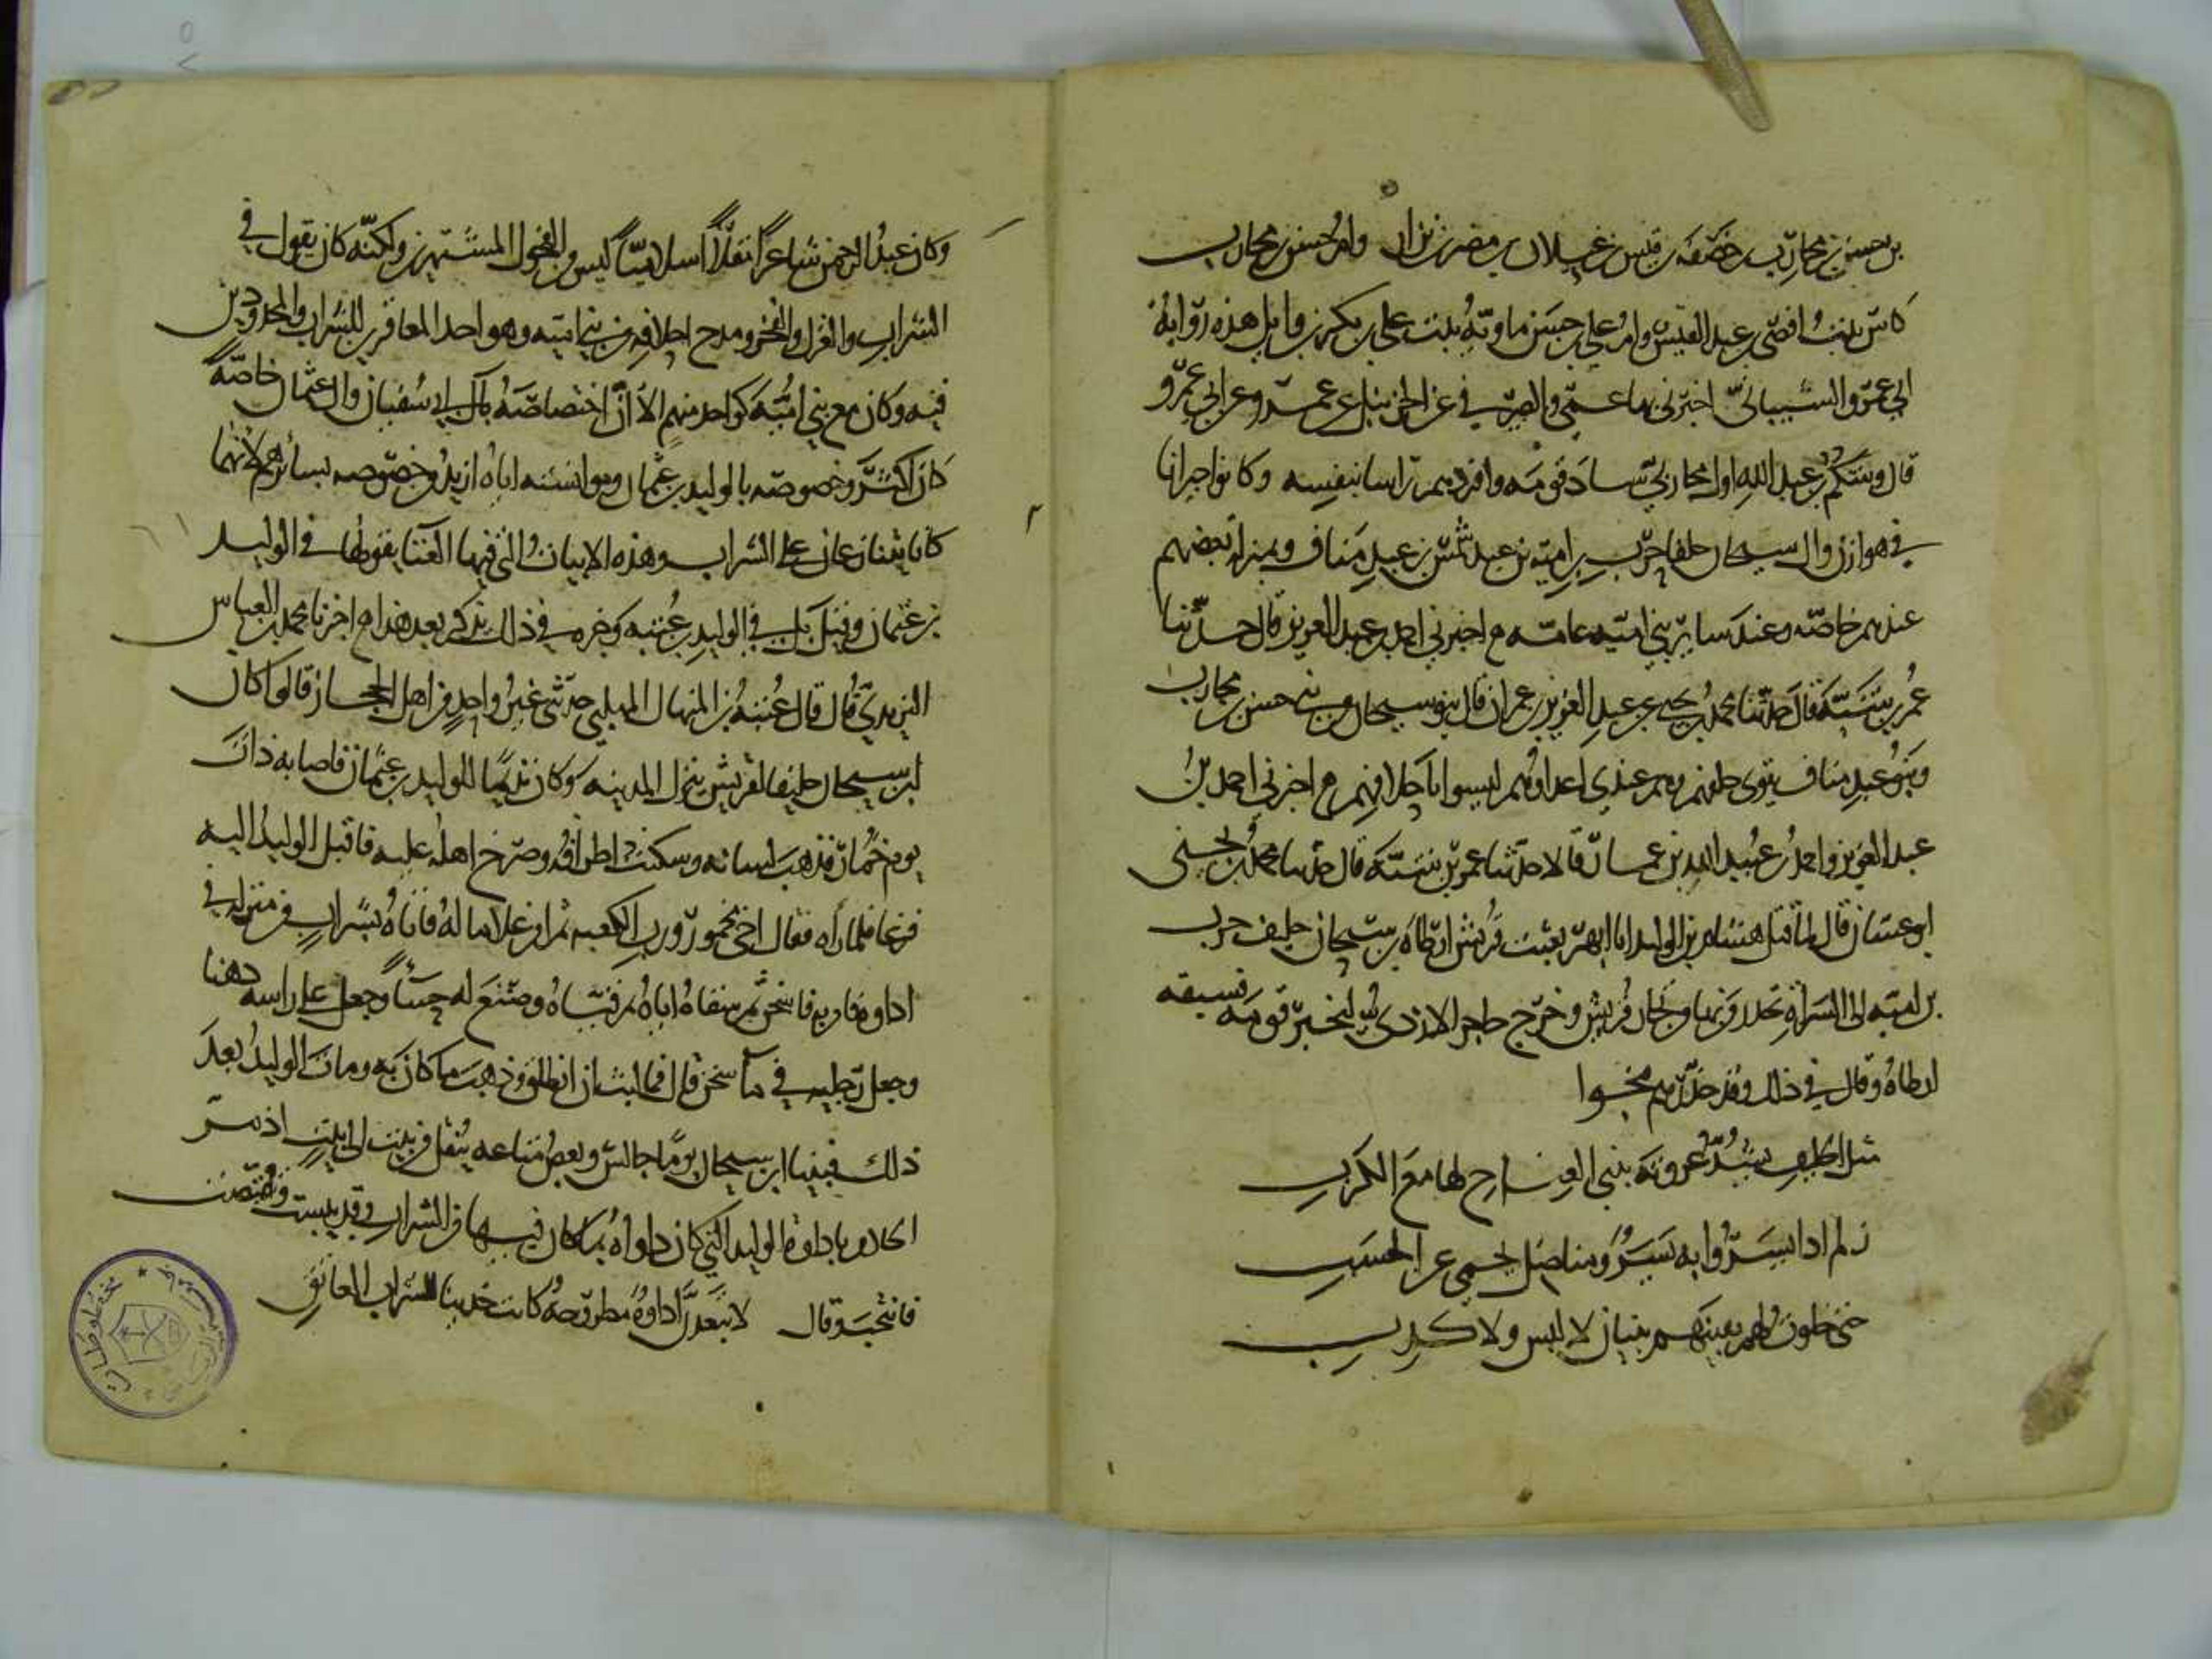 بن جسر بن محارب بن خصفة بن قيس بن عيلان بن مضر بن نزار وام جسر بن محارب
كاس بنت افصى بن عبد القيس وام علي بن جسر ماوية بنت علي بن بكر بن وايل هذه رواية
ابي عمرو الشيباني اخبرني بها عمي والصولي في عن الحزنبل عن عمرو عن ابي عمرو
قال وستكم بن عبد الله اول محاربي ساد قومه واخذ مرباعها بنفسه وكانوا جيرانا
في هوازن وال سيحان حلفا حرب بن امية بن عبد شمس بن عبد مناف وبمنزلة بعضهم
عندهم خاصه وعند ساير بني امية عامه م اخبرني احمد بن عبد العزيز قال حدثنا
عمر بن شبة قال حدثنا محمد بن يحيى عن عبد العزيز بن عمران قال بنو سيحان من بني جسر بن محارب
وبنو عبد مناف تقوي حلفهم وهم عندي اعداوهم ليسوا باحلافهم م اخبرني احمد بن
عبد العزيز واحمد بن عبيد الله بن عمار قالا حدثنا عمر بن شبة قال حدثنا محمد بن يحيى
ابو غسان قال لما قتل هشام بن الوليد ابا ازيهر بعثت قريش ارطاه بن سيحان حليف حرب
بن امية الى السراة يحذر من بها من تجار قريش وخرج حاجز الازدي ليخبر قومه فسبقه
ارطاه وقال في ذلك وقد حذرهم فنجوا
مثل الحليف يشد عروته بثني العناج لها مع الكرب
زلم اذا يسروا به يسر ومناضل يحمي عن الحسب
وكان عبد الرحمن شاعرا مقلا اسلاميا ليس من الفحول المشتهرين ولكنه كان يقول في
الشراب والغزل والفخر ومدح احلافه من بني امية وهو احد المعاقرين للشراب والمحدودين
فيه وكان مع بني امية كواحد منهم الا ان اختصاصه بال ابي سفيان وال عثمان خاصة
كان اكثر وخصوصه بالوليد بن عثمان وموانسته اياه ازيد من خصوصه بسائرهم لانهما
كانا يتنادمان على الشراب وهذه الابيات التي فيها الغنا يقولها في الوليد
بن عثمان وقيل بل في الوليد بن عتبه وخبره في ذلك يذكر بعد هذا م اخبرنا محمد بن العباس
اليزيدي قال قال عتبة بن المنهال المهلبي حدثني غير واحد من اهل الحجاز قالوا كان
ابن سيحان حليفا لقريش ينزل المدينه وكان نديما للوليد بن عثمان فاصابه ذات
يوم خمار فذهب لسانه وسكنت اطرافه وصرخ اهله عليه فاقبل الوليد اليه
فزعا فلما راه فقال اخي مخمور ورب الكعبه ثم امر غلاما له فاتاه بشراب من منزله في
اداوة فامر به فاسخن ثم سقاه اياه ثم قياه وصنع له حسا وجعل على راسه دهنا
وجعل رجليه في ما سخن قال فما لبث ان انطلق وذهب ما كان به ومات الوليد بعد
ذلك فبينا ابن سيحان يوما جالس وبعض متاعه ينقل من بيت الى بيت اذ مر
الخادم باداوة الوليد التي كان داواه بما كان فيها من الشراب وقد يبست وتقبضت
فانتحب وقال لا تبعدن اداوة مطروحة كانت حديثا للشراب العاتق